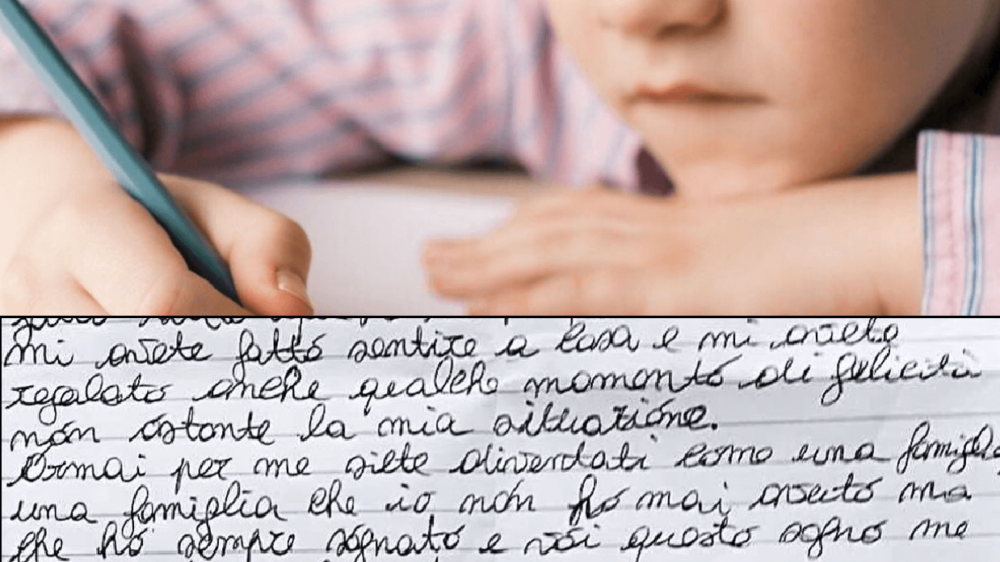 mi avete fatto sentire a casa e mi avete
regalato anche qualche momento di felicità
non ostante la mia situazione.
Ormai per me siete diventati come una famigl
una famiglia che io non ho mai avuto ma
che ho sempre sognato e voi questo sogno me